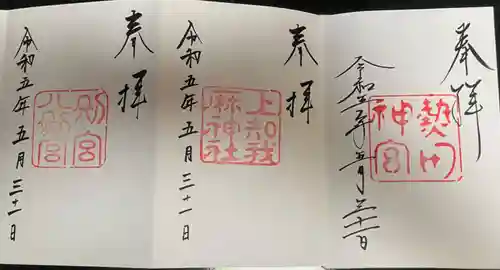 奉拝
熱田
神宮
令和五年五月三十一日
奉拝
上知我
麻神社
令和五年五月三十一日
奉拝
別宮
八剱宮
令和五年五月三十一日